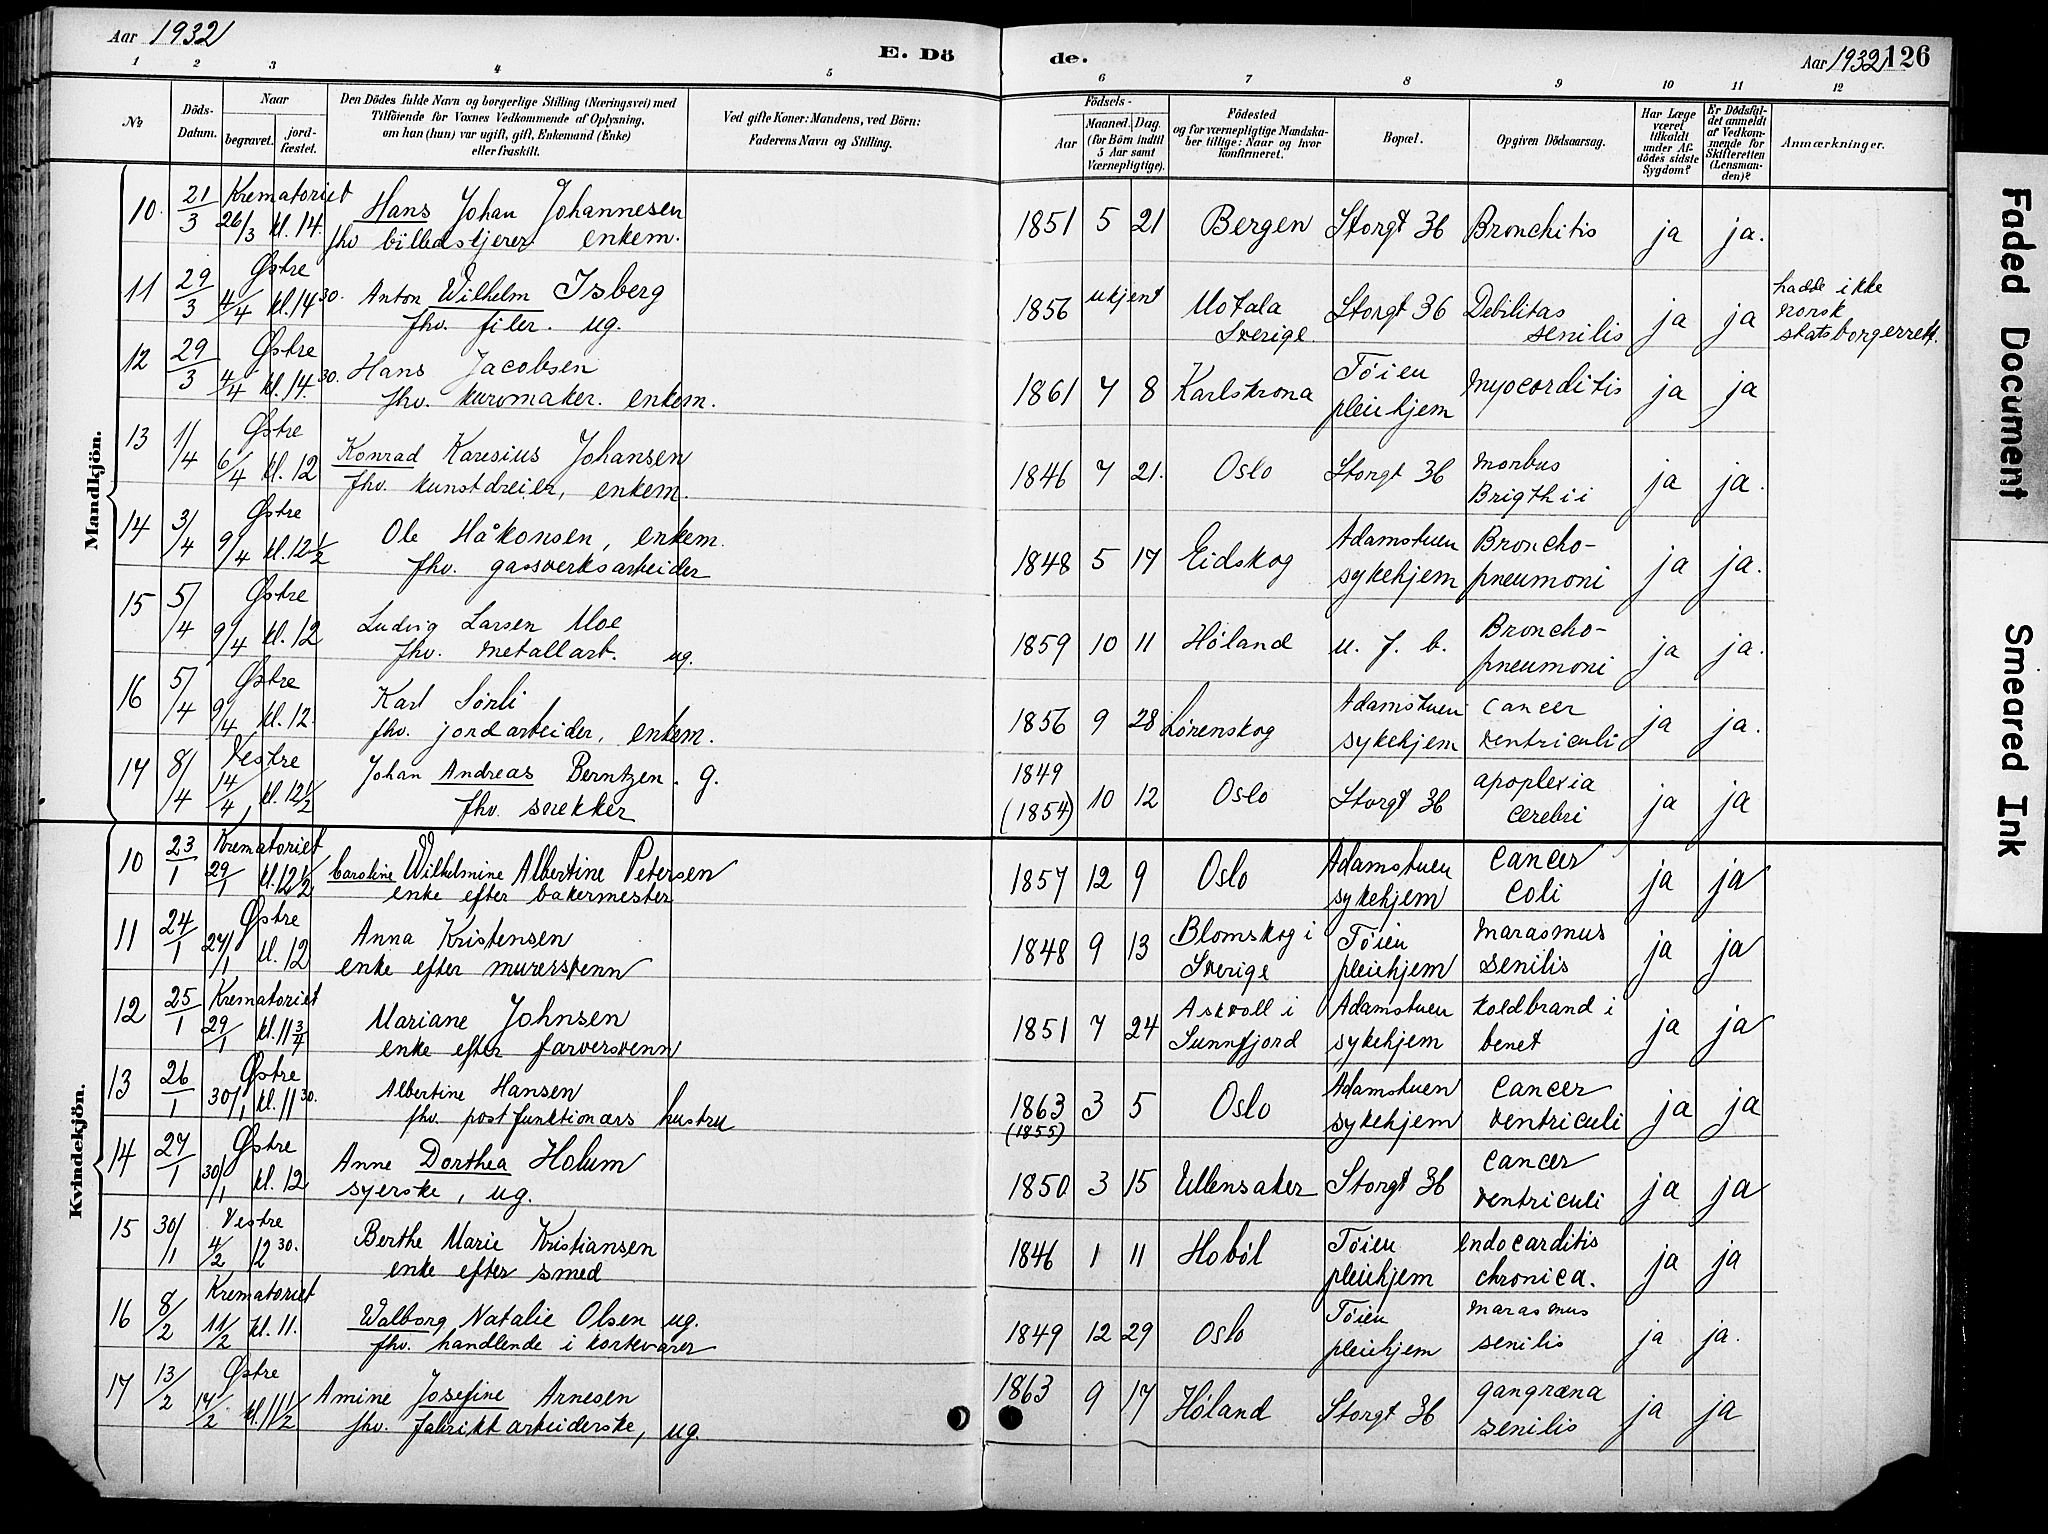 Aar 1932
E. Dö
de.
Aar 1932 126
1 2 3 4 5 6 7 8 9 10 11 12
№
Döds-
Datum.
Naar
begravet.
jord-
fæstet.
Den Dödes fulde Navn og borgerlige Stilling (Næringsvei) med
Tilföiende for Voxnes Vedkommende af Oplysning,
om han (hun) var ugift, gift, Enkemand (Enke)
eller fraskilt.
Ved gifte Koner: Mandens, ved Börn:
Faderens Navn og Stilling.
Födsels-
Aar
Maaned. Dag.
(for Börn indtil
5 Aar samt
Værnepligtige).
Födested
og for værnepligtige Mandska-
ber tillige: Naar og hvor
konfirmeret.
Bopæl.
Opgiven Dödsaarsag.
Har Læge
været
tilkaldt
under Af-
dödes sidste
Sygdom?
Er Dödsfal-
det anmeldt
af Vedkom-
mende for
Skifteretten
(Lensman-
den)?
Anmærkninger.
Mandkjön.
10. 21/3 Krematoriet 26/3 kl. 14. Hans Johan Johannesen
fhv. billedskjerer enkem.
1851 5 21 Bergen Storgt 36 Bronchitis ja ja.
11 29/3 Østre 4/4 kl. 14 30. Anton Wilhelm Isberg
fhv. filer. ug.
1856 ukjent Motala
Sverige. Storgt 36 Debilitas
senilis ja ja hadde ikke
norsk
statsborgerrett.
12 29/3 Østre 4/4 kl. 14. 30. Hans Jacobsen
fhv. kurvmaker. enkem.
1861 7 8 Karlskrona Tøien
pleiehjem Myocarditis ja ja
13 1/4 Østre 6/4 kl. 12 Konrad Karesius Johansen
fhv. kunstdreier, enkem.
1846 7 21. Oslo Storgt 36 Morbus
Brigthii ja ja.
14 3/4 Østre 9/4 kl. 12 1/2 Ole Håkonsen, enkem.
fhv. gassverksarbeider
1848 5 17 Eidskog Adamstuen
sykehjem Broncho-
pneumoni ja ja.
15 5/4 Østre 9/4 kl. 12 Ludvig Larsen Moe
fhv. metallarb. ug.
1859 10 11 Høland u. f. b. Broncho-
pneumoni ja ja.
16 5/4 Østre 9/4 kl. 12. Karl Sørli
fhv. jordarbeider, enkem.
1856 9 28 Lørenskog Adamstuen
sykehjem Cancer
ventriculi ja ja.
17 8/4 Vestre 14/4 kl. 12 1/2 Johan Andreas Berntzen. g.
fhv. snekker
1849
(1854) 10 12 Oslo Storgt 36 apoplexia
cerebri ja ja
Kvindekjön.
10 23/1 Krematoriet 29/1 kl. 12 1/2 Caroline Wilhelmine Albertine Petersen
enke efter bakermester
1857 12 9 Oslo Adamstuen
sykehjem Cancer
coli ja ja
11 24/1 Østre 27/1 kl. 12 Anna Kristensen
enke efter murersvenn
1848 9 13 Blomskog i
Sverige Tøien
pleiehjem Marasmus
senilis ja ja
12 25/1 Krematoriet 29/1 kl. 11 3/4 Mariane Johnsen
enke efter farversvenn
1851 7 24 Askvoll i
Sunnfjord Adamstuen
sykehjem Koldbrand i
benet ja ja
13 26/1 Østre 30/1 kl. 11 30. Albertine Hansen
fhv. postfunktionærs hustru
1863
(1855) 3 5 Oslo Adamstuen
sykehjem Cancer
ventriculi ja ja
14 27/1 Østre 30/1 kl. 12 Anne Dorthea Holum
syerske, ug.
1850 3 15 Ullensaker Storgt 36 Cancer
ventriculi ja ja
15 30/1 Vestre 4/2 12 30. Berthe Marie Kristiansen
enke efter smed
1846 1 11 Hobøl Tøien
pleiehjem endocarditis
chronica. ja ja
16 8/2 Krematoriet 11/2 kl. 11. Walborg Natalie Olsen ug.
fhv. handlende i kortevarer
1849 12 29 Oslo Tøien
pleiehjem Marasmus
senilis ja ja.
17 13/2 Østre 17/2 kl. 11 1/2 Amine Josefine Arnesen
fhv. fabrikkarbeiderske, ug.
1863 9 17 Høland Storgt 36 gangræna
senilis ja ja
Faded Document
Smeared Ink